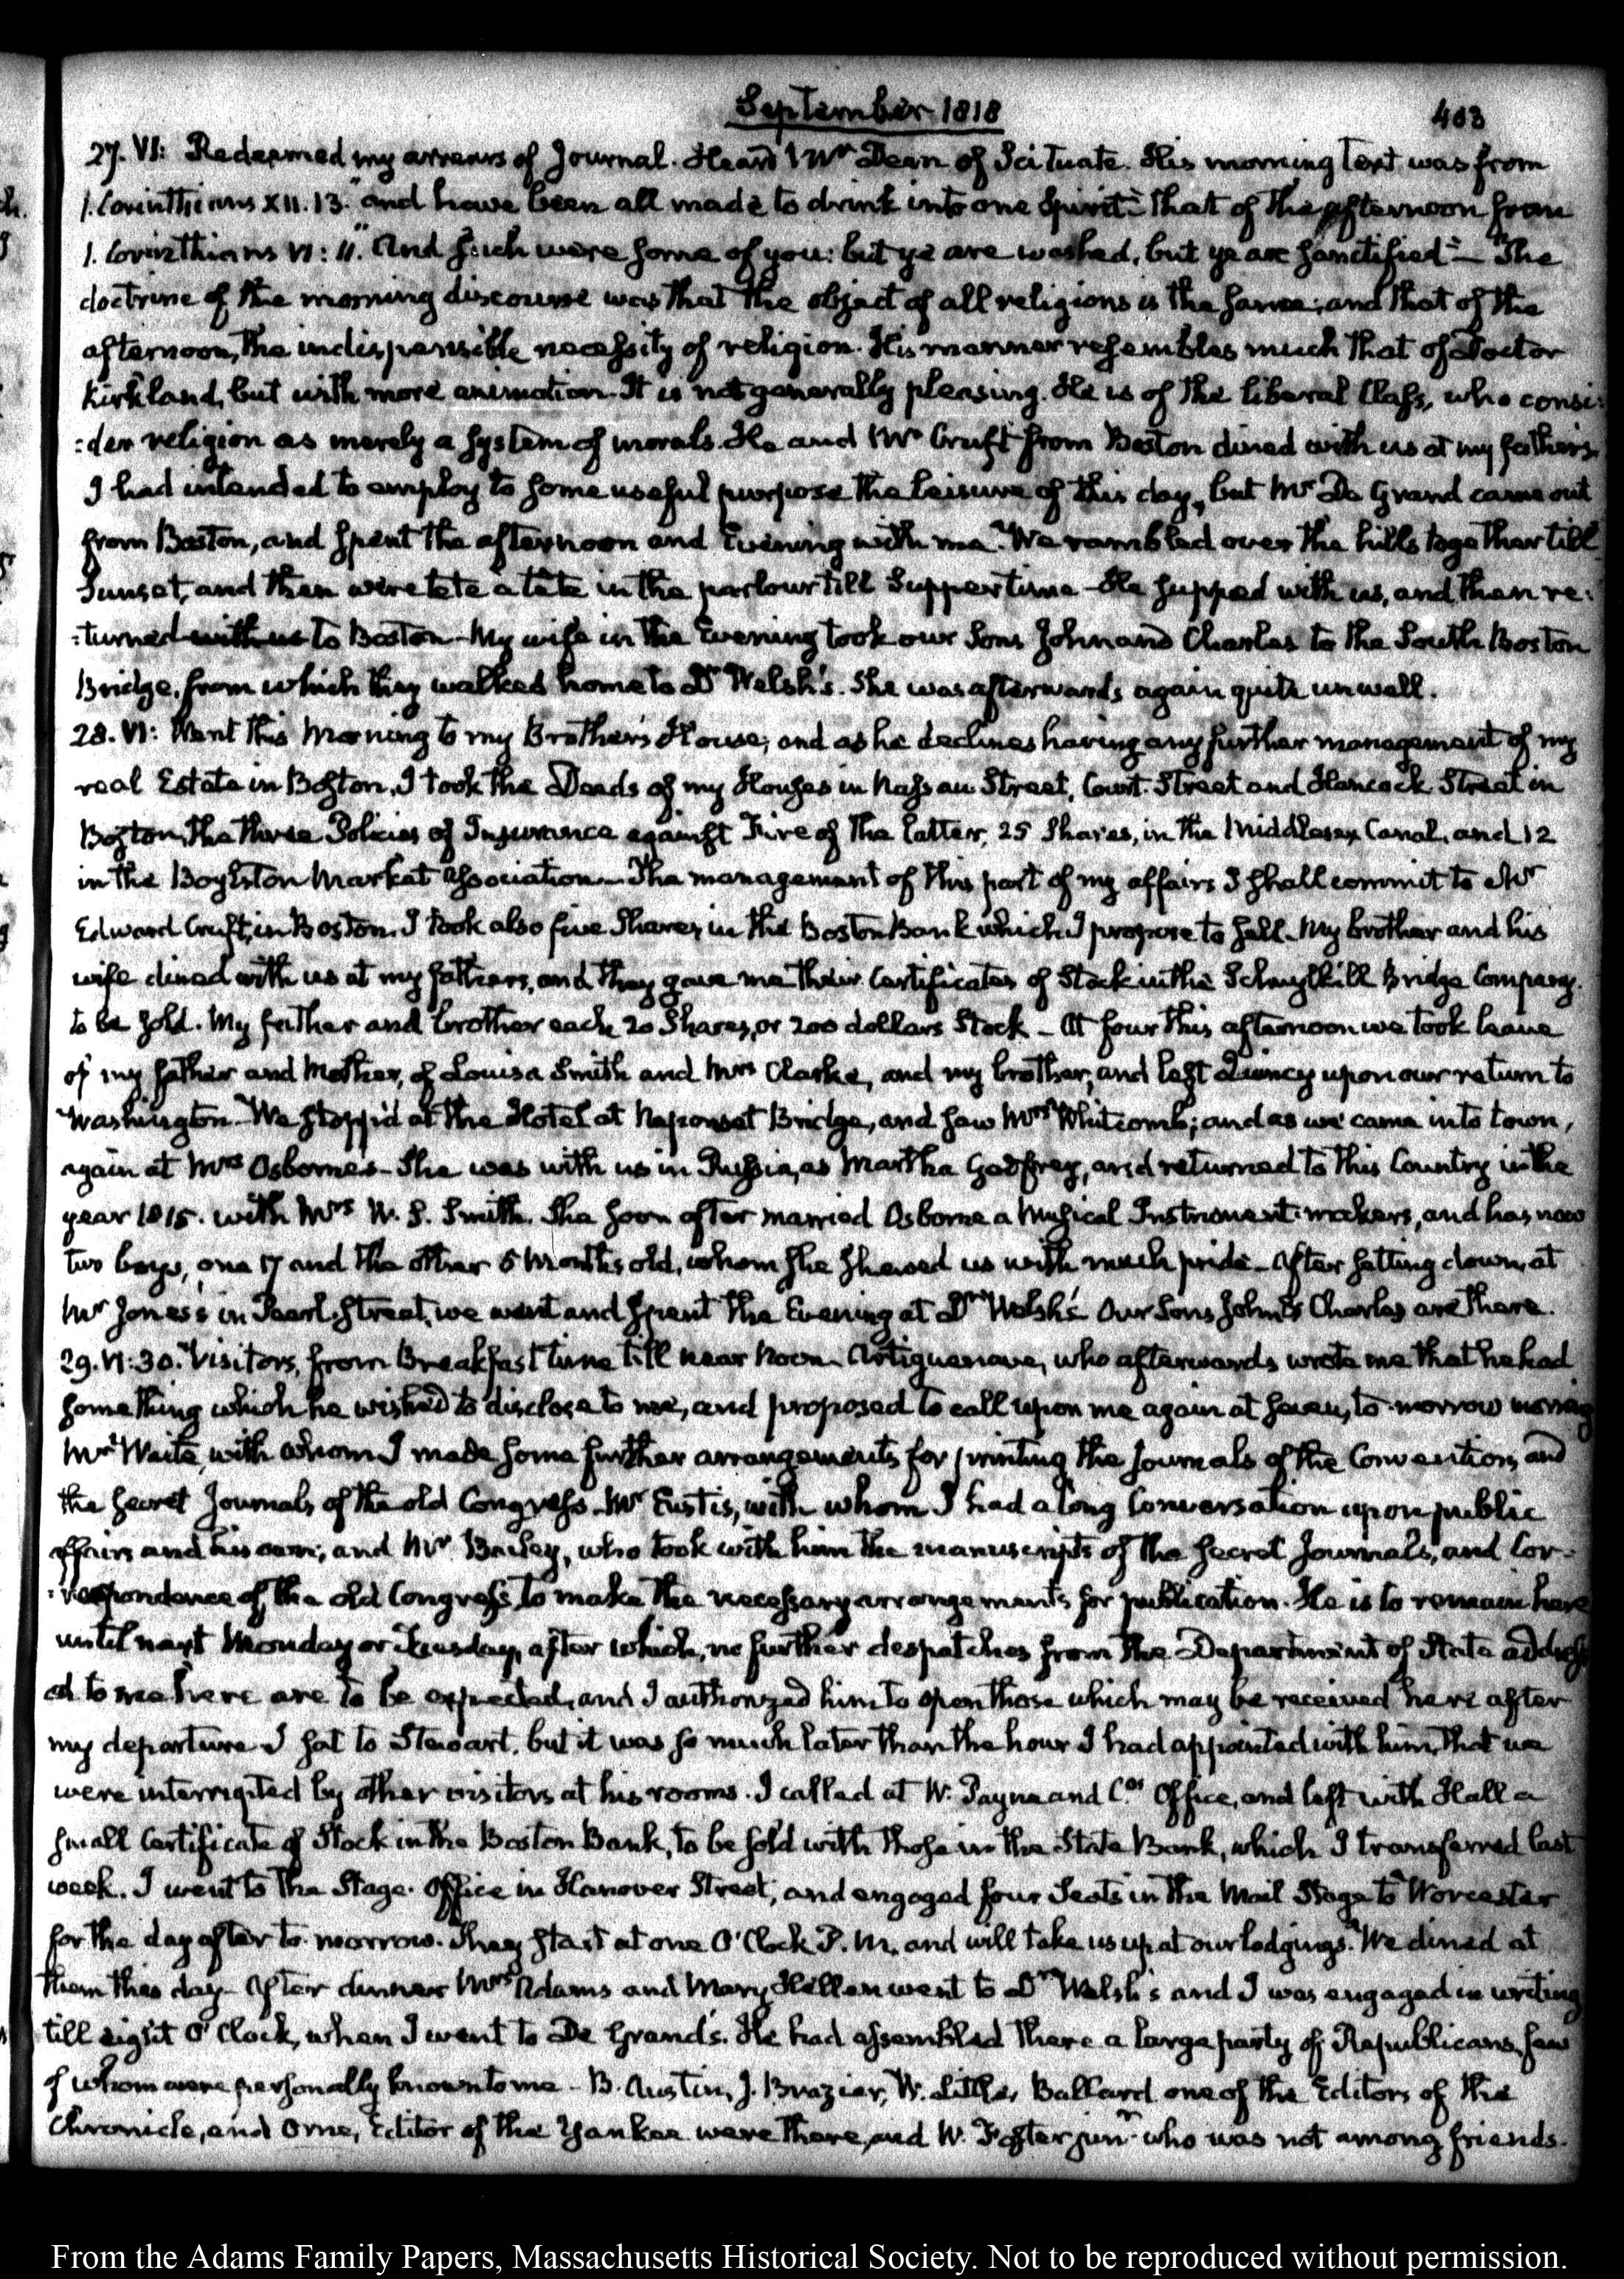 September 1818
403
27. VI: Redeemed my arrears of Journal. Heard Mr Dean of Scituate. His morning Text was from
1. Corinthians XII. 13. "and have been all made to drink into one Spirit" That of the afternoon from
1. Corinthians VI: 11. "And such were some of you: but ye are washed, but ye are sanctified" — The
doctrine of the morning discourse was that the object of all religions is the same; and that of the
afternoon, the indispensible necessity of religion. His manner resembles much that of Doctor
Kirkland, but with more animation. It is not generally pleasing. He is of the liberal Class, who consi:
:der religion as merely a system of morals. He and Mr Cruft from Boston dined with us at my father's.
I had intended to employ to some useful purpose the leisure of this day, but Mr De Grand came out
from Boston, and spent the afternoon and Evening with me. We rambled over the hills together till
Sunset, and then were tete a tete in the parlour till Supper time - He supped with us, and then re:
:turned with us to Boston - My wife in the Evening took our Sons John and Charles to the South Boston
Bridge, from which they walked home to Dr Welsh's. She was afterwards again quite unwell.
28. VI: Went this Morning to my Brother's House; and as he declines having any further management of my
real Estate in Boston, I took the Deeds of my Houses in Nassau Street, Court Street and Hancock Street in
Boston, the three Policies of Insurance against Fire of the latter, 25 Shares, in the Middlesex Canal, and 12
in the Boylston Market Association - The management of this part of my affairs I shall commit to Mr
Edward Cruft, in Boston. I took also five Shares in the Boston Bank which I propose to sell - My brother and his
wife dined with us at my fathers, and they gave me their Certificates of Stock in the Schuylkill Bridge Company.
to be sold. My father and brother each 20 Shares, or 200 dollars Stock - At four this afternoon we took leave
of my father and Mother, of Louisa Smith and Mrs Clarke, and my brother, and left Quincy upon our return to
Washington - We stopp'd at the Hotel at Neponset Bridge, and saw Mrs Whitcomb; and as we came into town,
again at Mrs Osborne's - She was with us in Russia, as Martha Godfrey, and returned to this Country in the
year 1815. with Mrs W. S. Smith. She soon after married Osborne a Musical Instrument: makers, and has now
two boys, one 17 and the other 5 Months old, whom she shewed us with much pride - After setting down, at
Mr Jones's in Pearl Street, we went and spent the Evening at Dr Welsh's Our Sons John & Charles are there.
29. VI: 30. Visitors, from Breakfast time till near Noon. Artiguenave, who afterwards wrote me that he had
something which he wished to disclose to me, and proposed to call upon me again at seven, to-morrow morning
Mr Waite, with whom I made some further arrangements for printing the Journals of the Convention, and
the Secret Journals of the old Congress - Mr Eustis, with whom I had a long Conversation upon public
affairs and his own; and Mr Bailey, who took with him the manuscripts of the Secret Journals, and Cor:
:respondence of the old Congress, to make the necessary arrangements for publication. He is to remain here
until next Monday or Tuesday, after which, no further despatches from the Department of State address
ed to me here are to be expected, and I authorized him to open those which may be received here after
my departure I sat to Stewart, but it was so much later than the hour I had appointed with him, that we
were interrupted by other visitors at his rooms. I called at W. Payne and Co's Office, and left with Hall a
small Certificate of Stock in the Boston Bank, to be sold with those in the State Bank, which I transferred last
week. I went to the Stage-Office in Hanover Street, and engaged four Seats in the Mail Stage to Worcester
for the day after to-morrow. They start at one O'Clock P.M. and will take us up at our lodgings. We dined at
them this day - After dinner Mrs Adams and Mary Hellen went to Dr Welsh's and I was engaged in writing
till eight O'Clock, when I went to De Grand's. He had assembled there a large party of Republicans, few
of whom were personally known to me - B. Austin, J. Brazier, W. Little, Ballard one of the Editors of the
Chronicle, and Orne, Editor of the Yankee were there, and W. Foster junr who was not among friends.
From the Adams Family Papers, Massachusetts Historical Society. Not to be reproduced without permission.